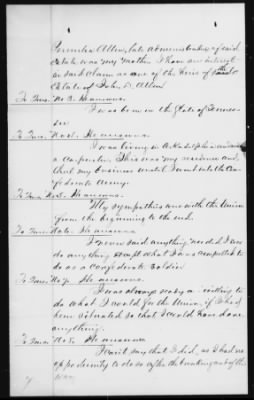 Permelia Allen, late administratrix of said
Estate was my mother I have an interest
in said claim as one of the heirs of the
Estate of John D. Allen
To Ques. No 3. He answers.
I was born in the State of Tennes-
see
To Ques. No 4. He answers.
I was living in
a Carpenter. This was my residence and
that my business until I went into the Con-
federate Army.
To Ques. No 5. He answers.
My sympathies were with the Union
from the beginning to the end.
To Ques. No 6. He answers
I never said anything nor did I ever
do anything except what I was compelled to
do as a Confederate Soldier
To Ques. No 7. He answers.
I was always ready & willing to
do what I would for the Union, if I had
been situated so that I could have done
anything.
To Ques. No 8. He answers
I can't say that I did, as I had no
opportunity to do so after the breaking out of the
war.